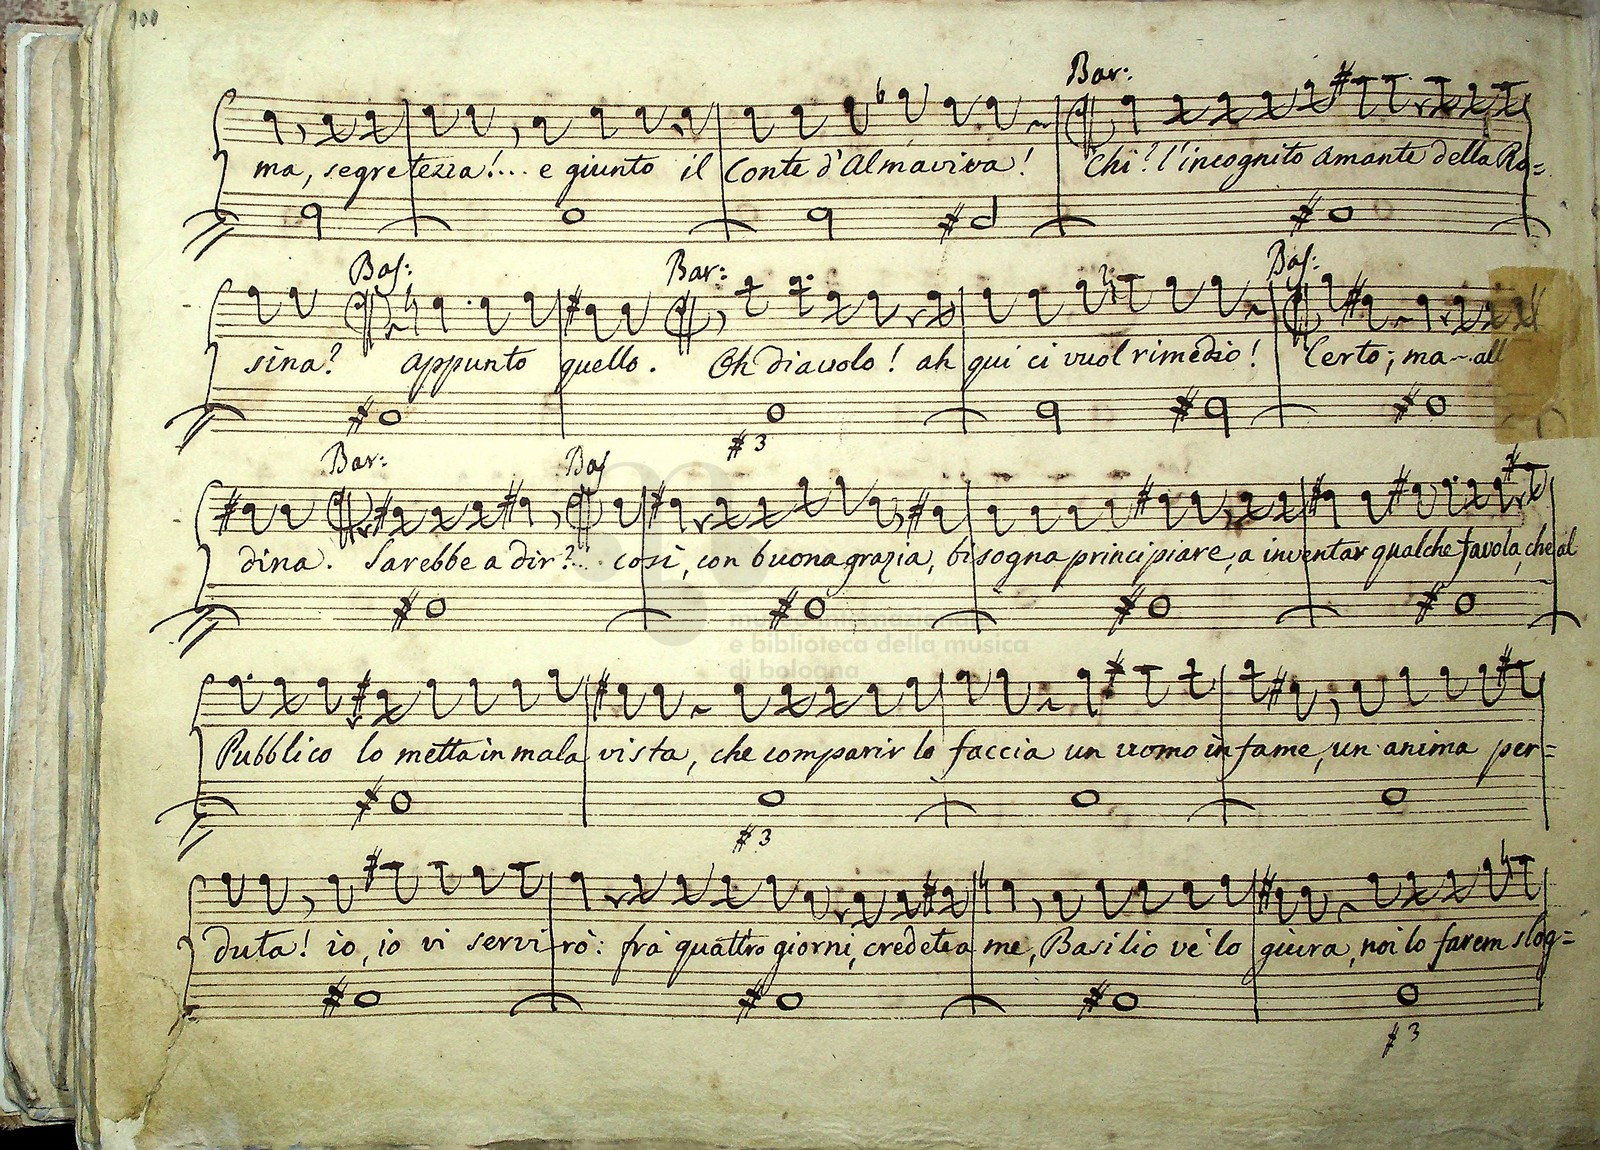 100
Bar:
ma, segretezza!... e giunto il Conte d'Almaviva! Chi? l'incognito amante della Ro=
Bas: Bar: Bas:
sina? appunto quello. Oh diavolo! ah qui ci vuol rimedio! Certo; ma... all
# 3
Bar: Bas
dina. Sarebbe a dir?... così, con buona grazia, bisogna principiare, a inventar qualche favola, che al
museo internazionale
e biblioteca della musica
di bologna
Pubblico lo metta in mala vista, che comparir lo faccia un uomo infame, un anima per=
# 3
duta! io, io vi servirò: frà quattro giorni, credete a me, Basilio ve lo giura, noi lo farem slog=
# 3